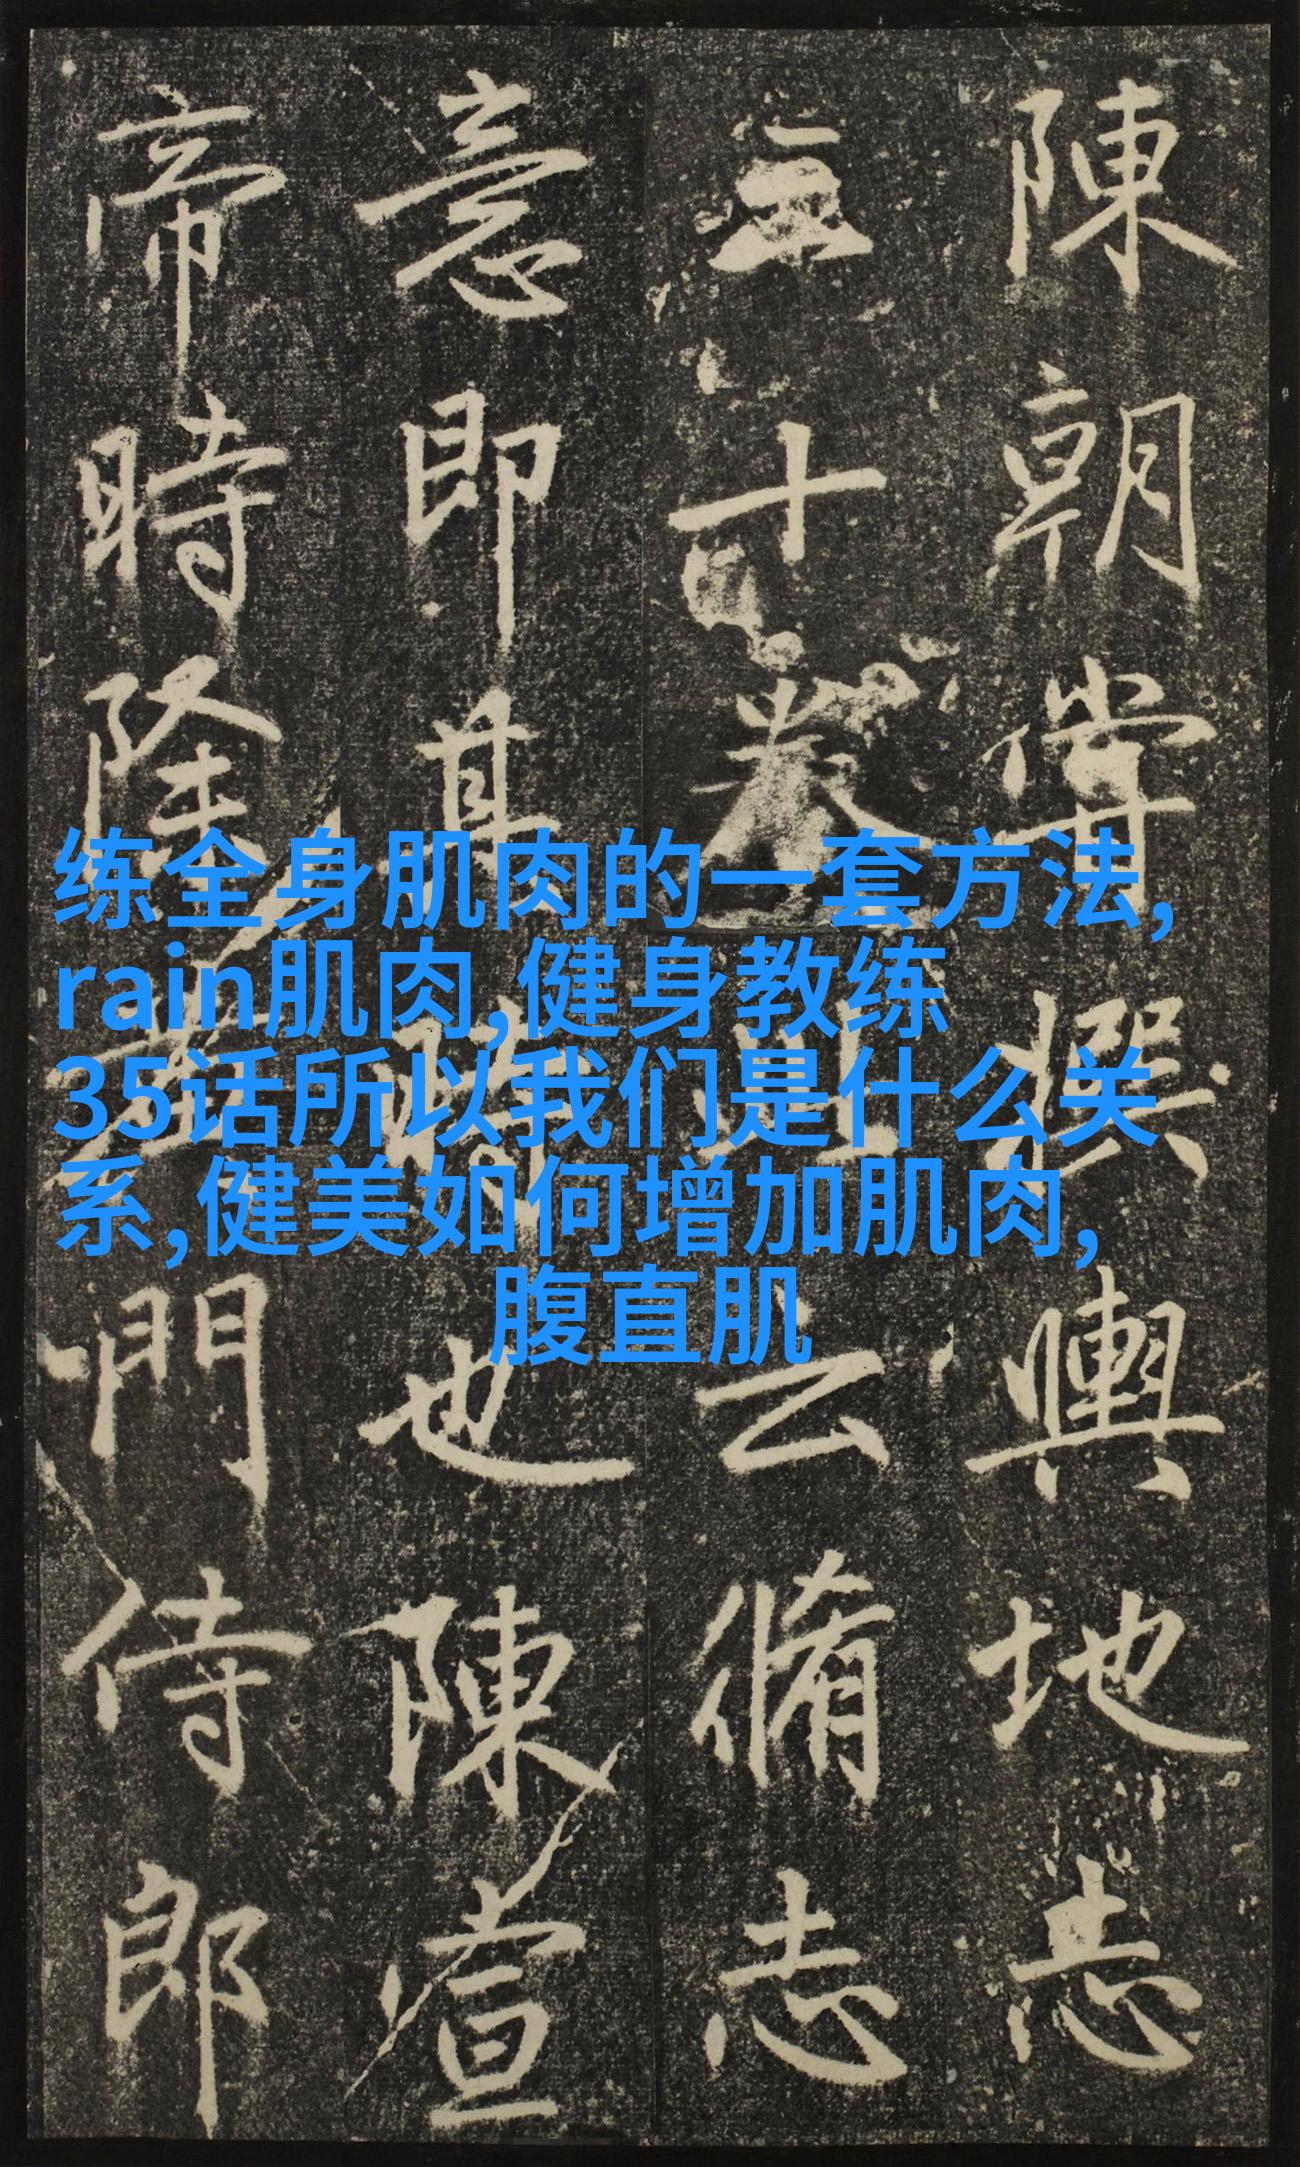 陳朝嘗撰輿地志
十卷云脩志
意即其時也陳宣
帝時黃門侍郎
练全身肌肉的一套方法,
rain肌肉,健身教练
35话所以我们是什么关
系,健美如何增加肌肉,
腹直肌